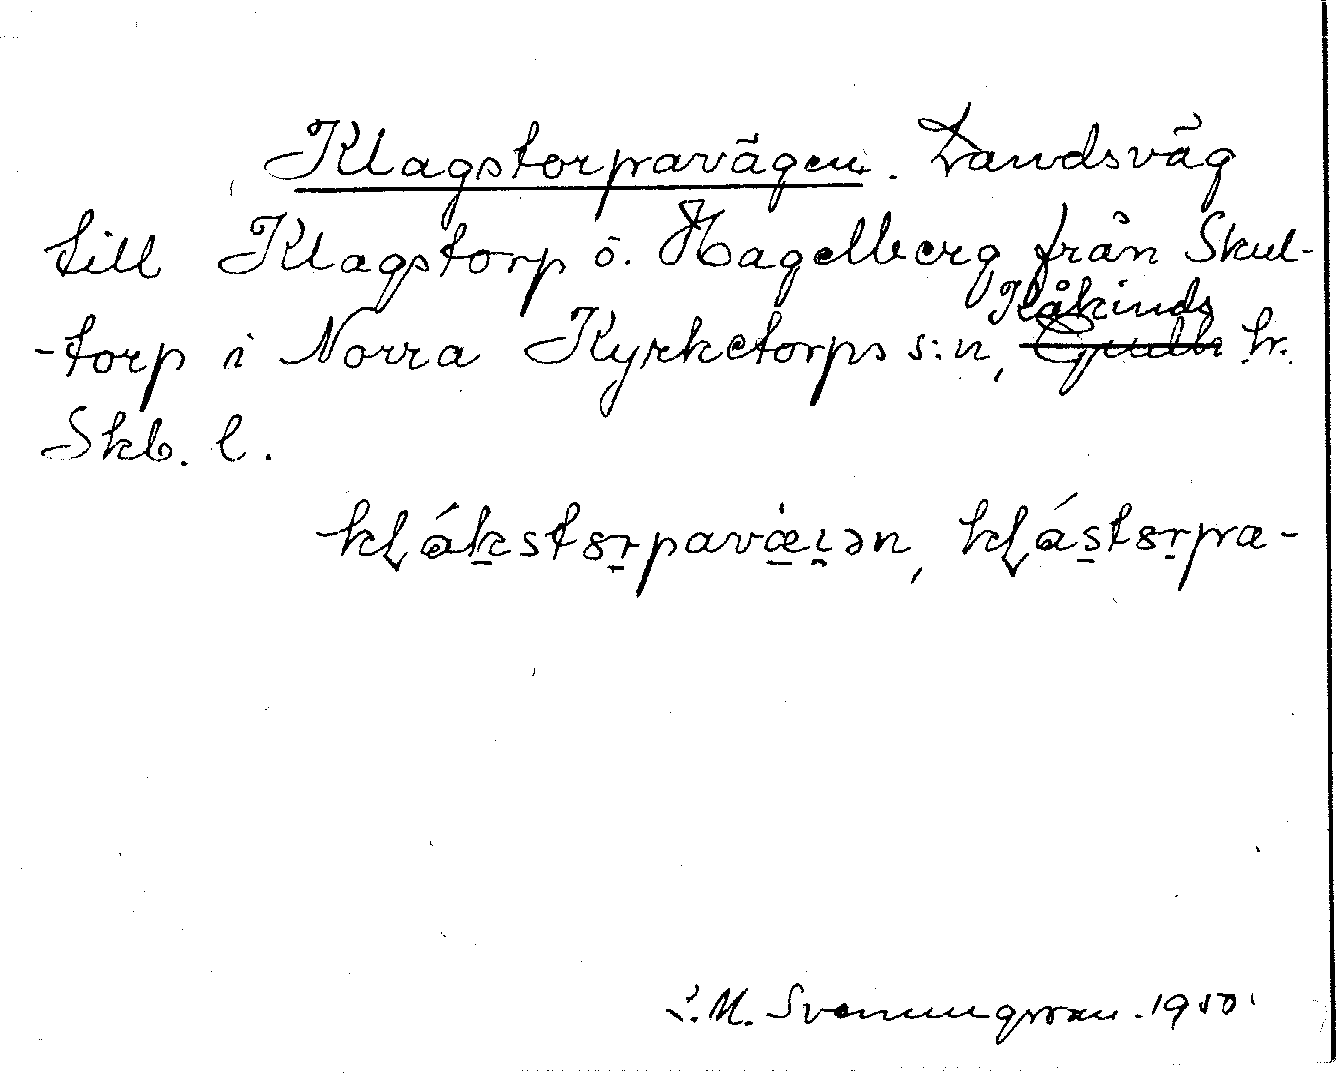 Klagstorpavägen. Landsväg
till Klagstorp o. Hagelberg från Skul-
-torp i Norra Kyrketorps s:n, Kåkinds hr.
Skb. l.
kḷákstɞrpavæ̀i̯ən, kḷástɞrpa-
S.M. Svenningsson. 1950